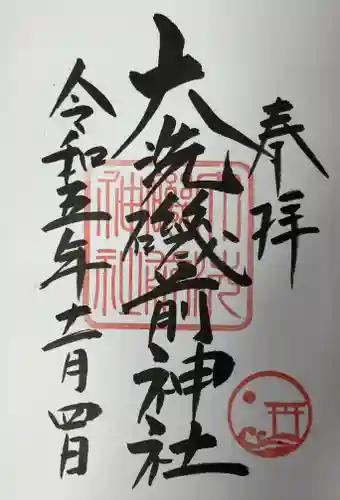 奉拝
大洗磯前神社
令和五年十一月四日